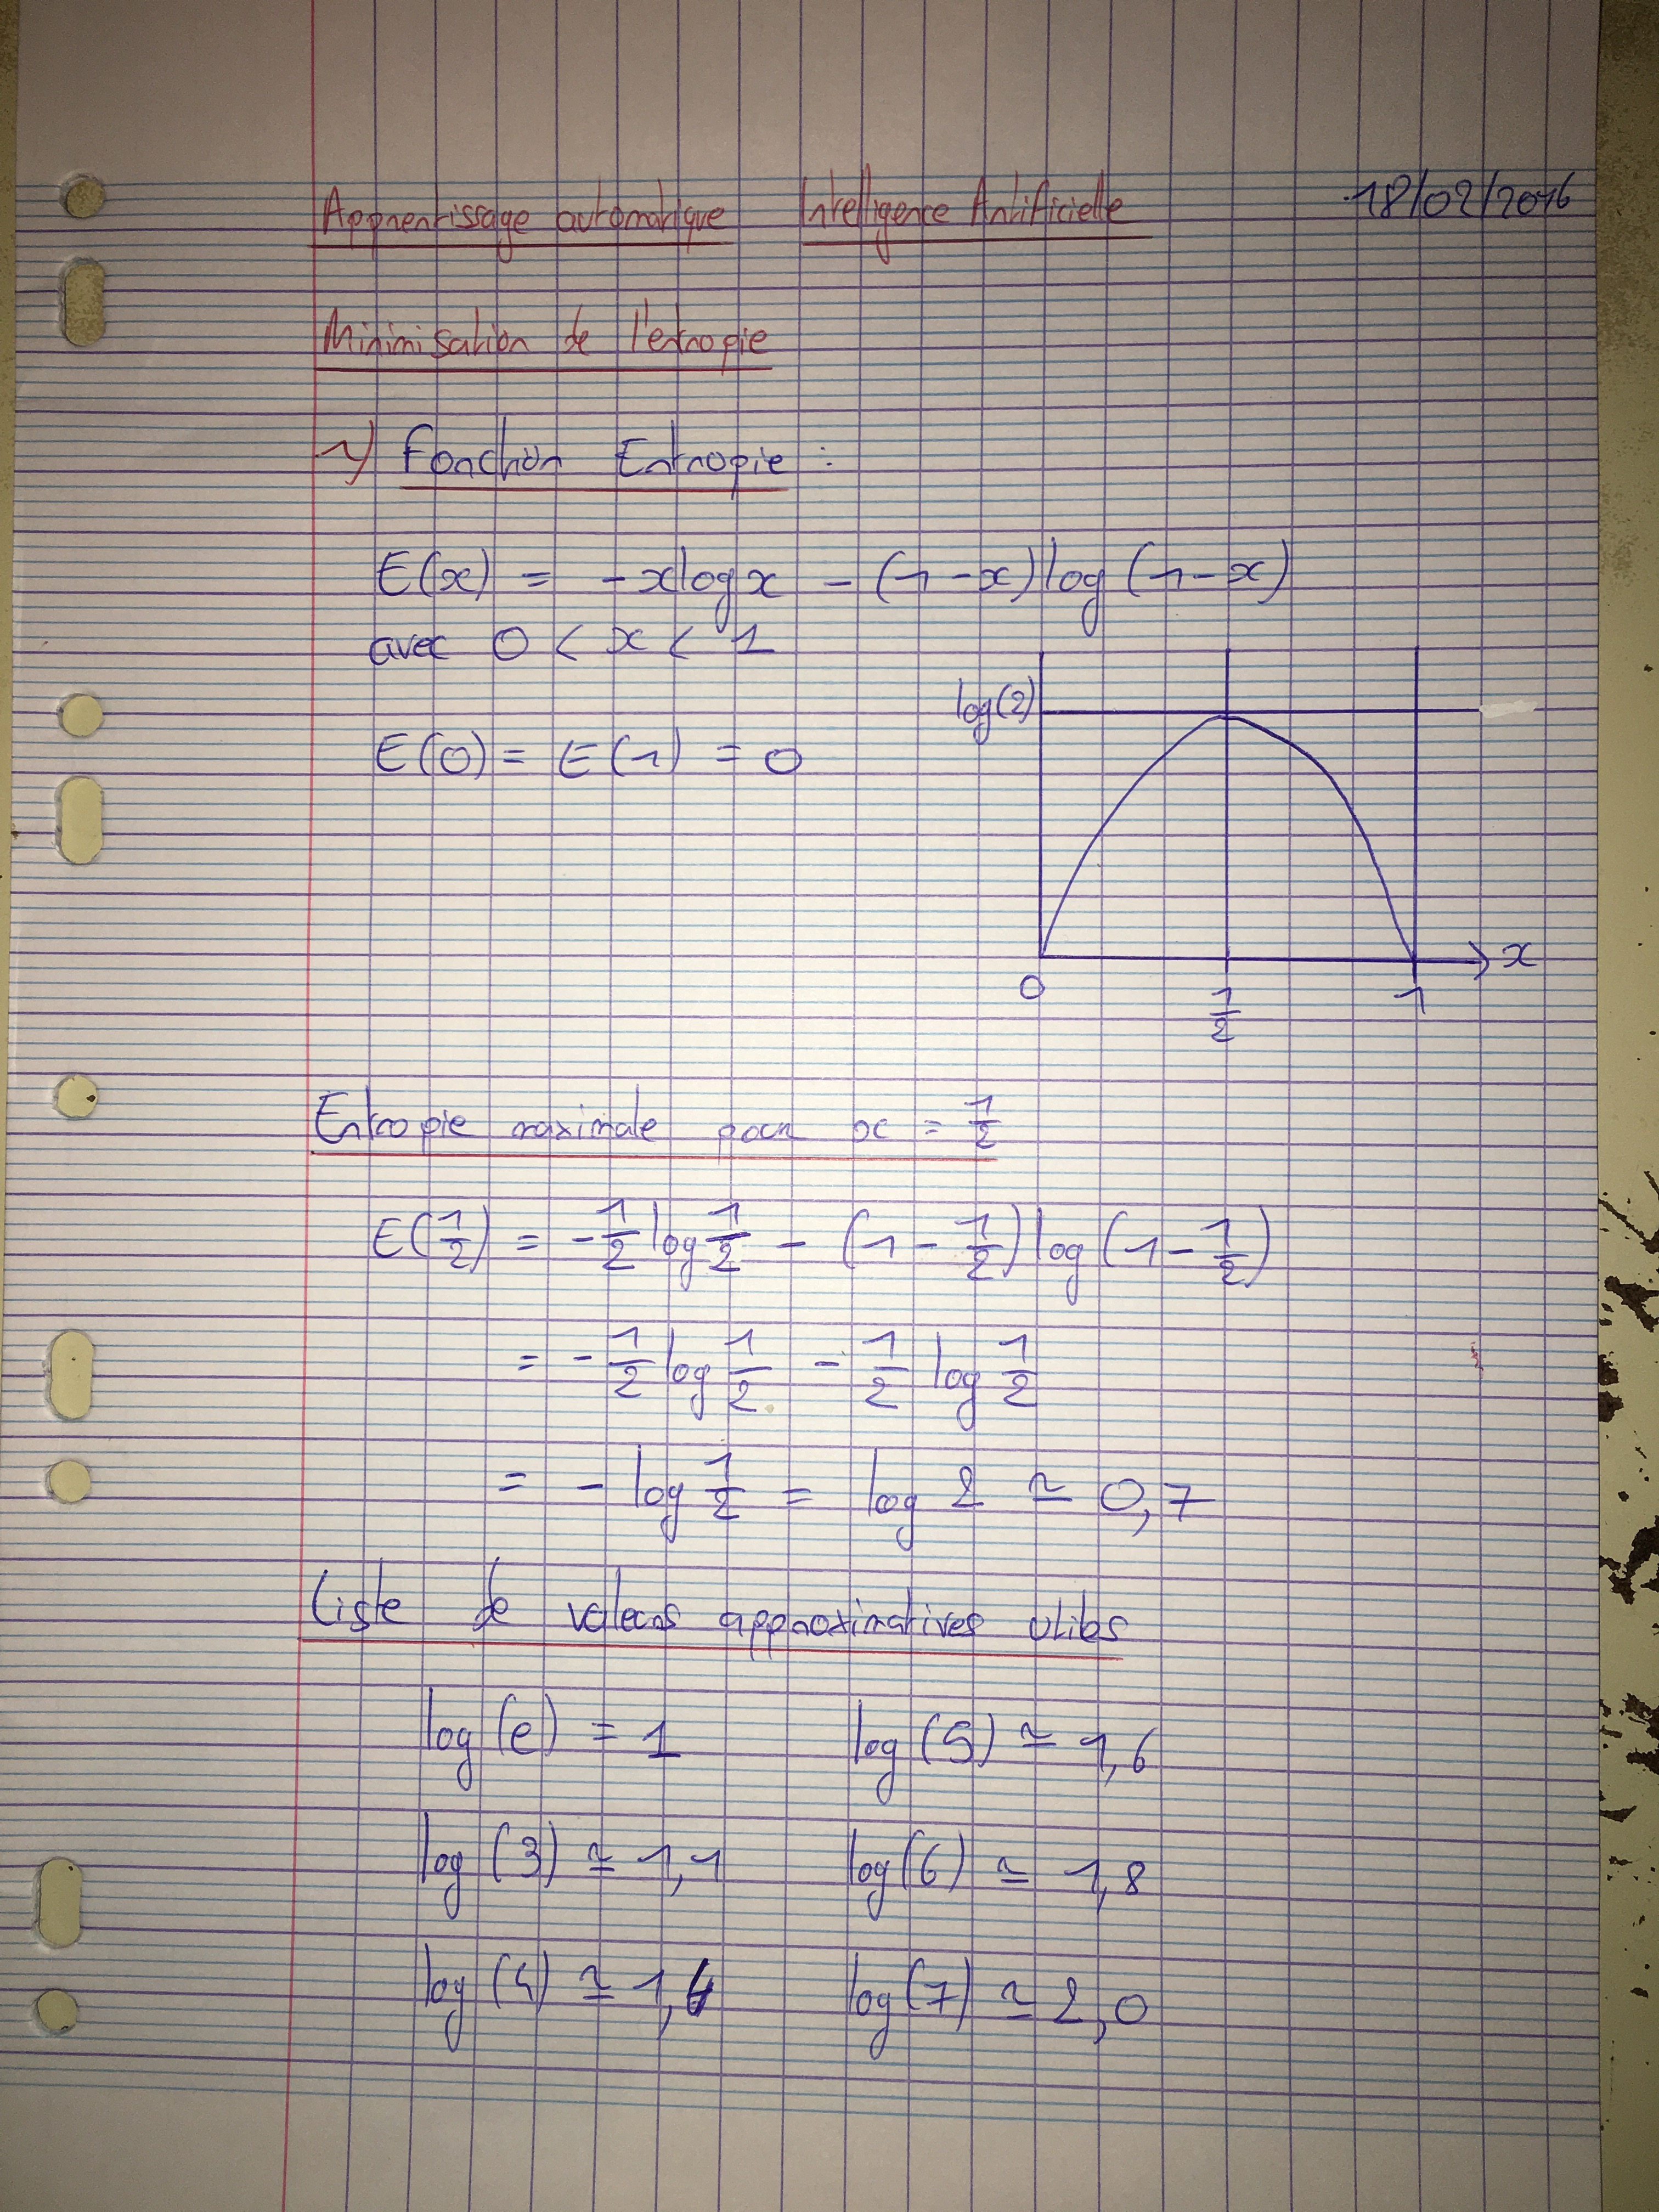 Apprentissage automatique Intelligence Artificielle 18/02/2016
Minimisation de l'entropie
1) Fonction Entropie :
E(x) = -x log x - (1-x) log (1-x)
avec 0 < x < 1
log(2)
E(0) = E(1) = 0
x
0 1/2 1
Entropie maximale pour x = 1/2
E(1/2) = -1/2 log 1/2 - (1 - 1/2) log (1 - 1/2)
= - 1/2 log 1/2 - 1/2 log 1/2
= - log 1/2 = log 2 ≃ 0,7
Liste de valeurs approximatives utiles
log(e) = 1 log(5) ≃ 1,6
log(3) ≃ 1,1 log(6) ≃ 1,8
log(4) ≃ 1,4 log(7) ≃ 2,0